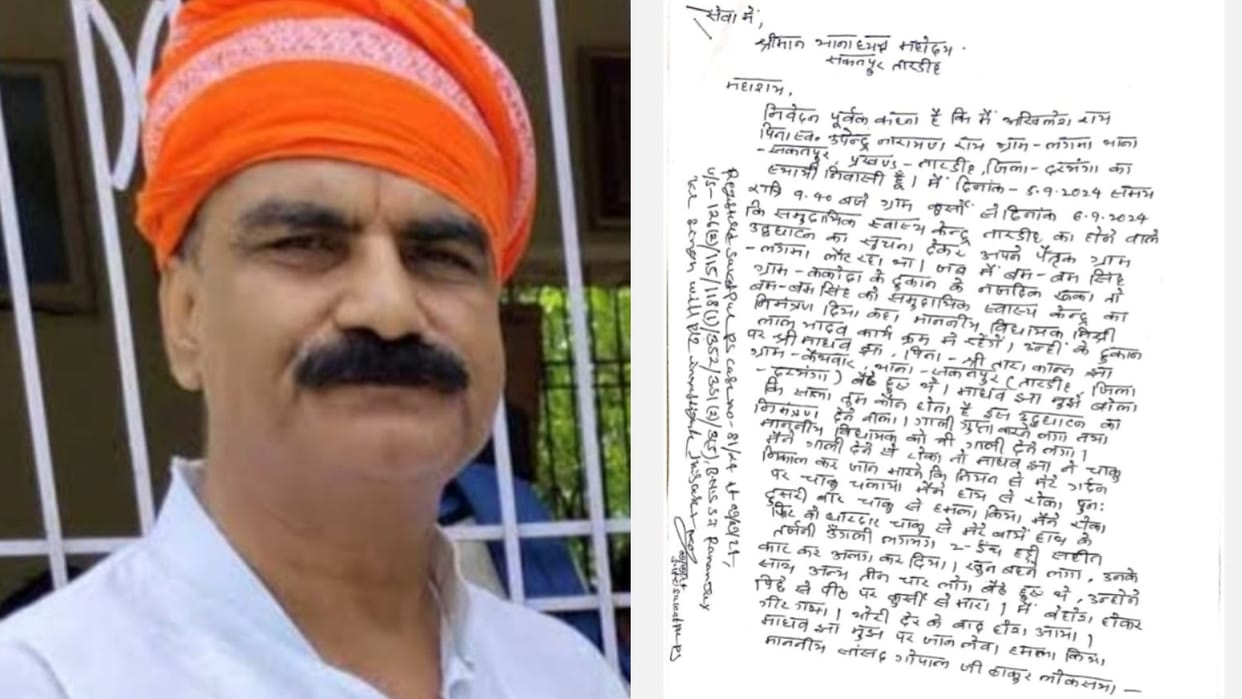 सेवा में,
श्रीमान थानाध्यक्ष महोदय.
सकतपुर तारडीह
महाशय,
निवेदन पूर्वक कहना है कि मैं अखिलेश राय
पिता स्व. उपेन्द्र नारायण राय ग्राम - लगमा थाना
- सकतपुर, प्रखण्ड - तारडीह, जिला - दरभंगा का
स्थायी निवासी हूँ। मैं दिनांक - 5.9.2024 समय
रात्रि 9.40 बजे ग्राम कुर्सों से दिनांक 6.9.2024
कि समुदायिक स्वास्थ्य केन्द्र तारडीह का होने वाले
उद्घाटन का सूचना देकर अपने पैतृक ग्राम
- लगमा लौट रहा था। जब मैं बम - बम सिंह
ग्राम - ककोढ़ा के दुकान के नजदिक रूका तो
बम - बम सिंह को समुदायिक स्वास्थ्य केन्द्र का
निमंत्रण दिया कहा माननीय विधायक मिश्री
लाल यादव कार्य क्रम में रहेंगें। उन्हीं के दुकान
पर श्री माधव झा, पिता - श्री तारा कान्त झा
ग्राम - कैथवार, थाना - सकतपुर (तारडीह जिला
- दरभंगा) बैठे हुए थे। माधव झा मुझे बोला
कि साला तुम कौन होता है इस उद्घाटन का
निमंत्रण देने वाला। गाली गुप्ता करने लगा तथा
माननीय विधायक को भी गाली देने लगा।
मैंने गाली देने से रोका तो माधव झा ने चाकु
निकाल कर जान मारने कि नियत से मेरे गर्दन
पर चाकु चलाया मैंने हाथ से रोका पुनः
दुसरी बार चाकु से हमला किया, मैंने रोका
फिर वो धारदार चाकु से मेरे बायें हाथ के
तर्जनी उँगली लगभग 2 - ईंच हड्डी सहीत
काट कर अलग कर दिया। खुन बहने लगा, उनके
साथ अन्य तीन चार लोग बैठे हुए थे, उन्होंने
पिछे से पीठ पर कुर्सी से मारा। मैं बेहोश होकर
गीर गया। थोरी देर के बाद होश आया।
माधव झा मुझ पर जान लेवा हमला किया
माननीय सांसद गोपाल जी ठाकुर लोकसभा -
Registered Sakatpur ps case no - 81/24 dt 06/09/24,
u/s - 126(2)/115/118(1)/352/351(2)/3(5), BNS. SI Ramanujay